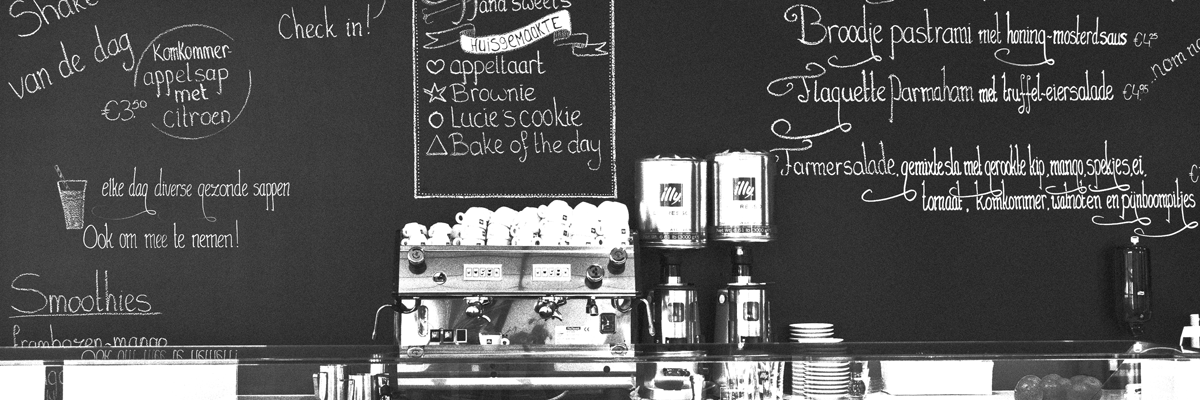 Shake
van de dag
Komkommer
appelsap
met
citroen
€3.50
elke dag diverse gezonde sappen
Ook om mee te nemen!
Smoothies
frambozen-mango
Check in!
and sweets
HUISGEMAAKTE
appeltaart
Brownie
Lucie's cookie
Bake of the day
illy
illy
Broodje pastrami met honing-mosterdsaus €4.25
Flaguette Parmaham met truffel-eiersalade €4.95
nom
Farmersalade, gemixte sla met gerookte kip, mango, spekjes, ei,
tomaat, komkommer, walnoten en pijnboompitjes